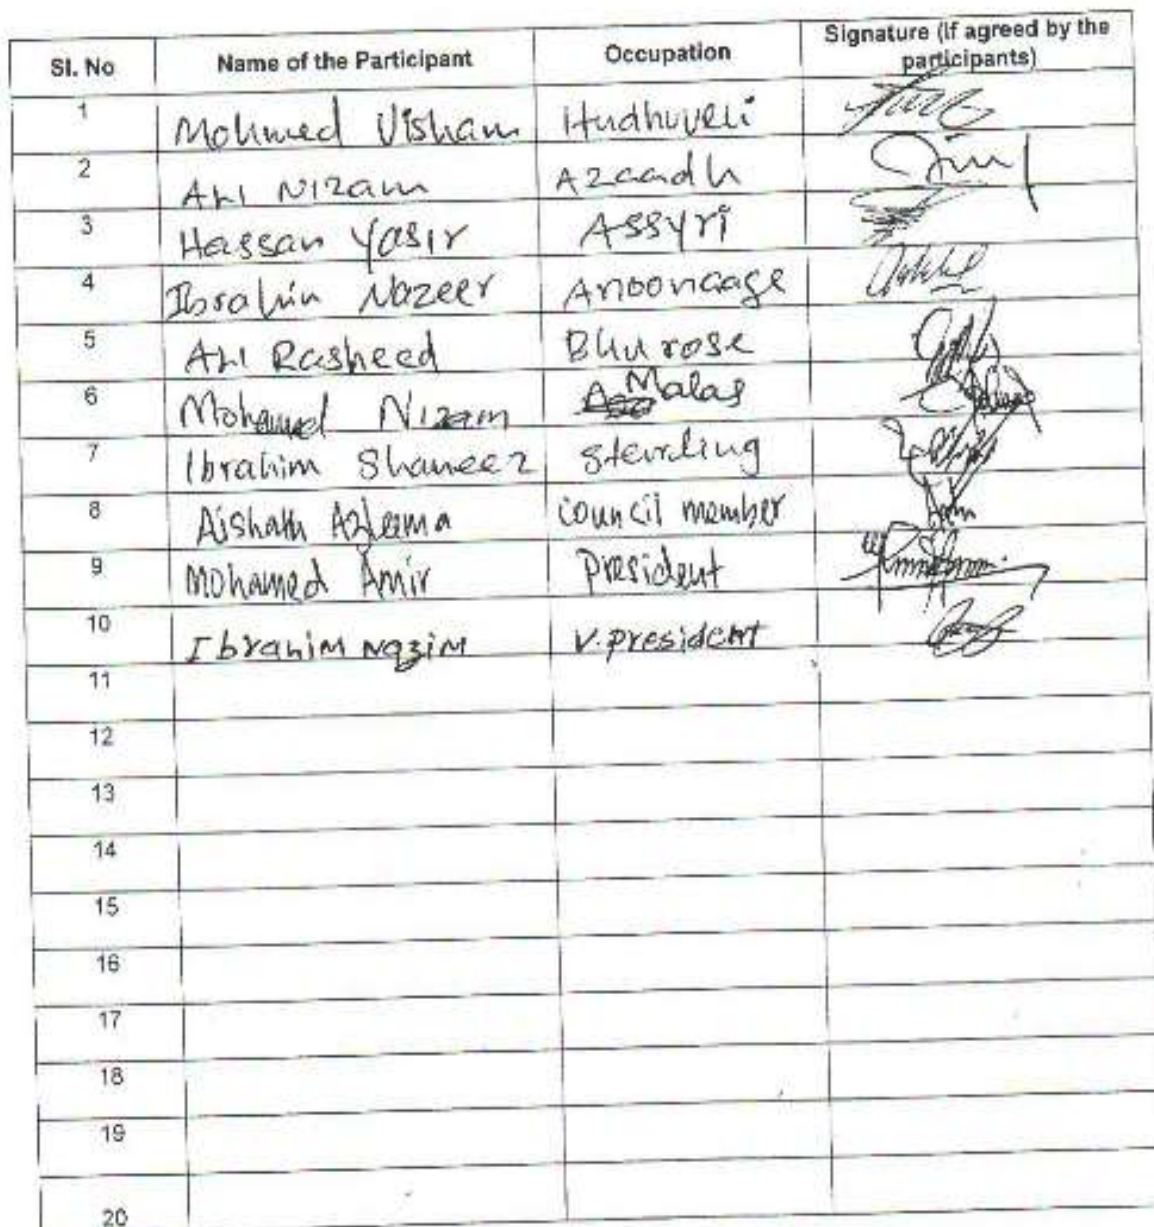 Sl. No Name of the Participant Occupation Signature (If agreed by the participants)
1 Mohmed Visham Hudhuveli
2 Ali Nizam Azaadh
3 Hassan Yasir Assyri
4 Ibrahin Nazeer Anoonaage
5 Ali Rasheed Blu rose
6 Mohamed Nizam Malas
7 Ibrahim Shaneez Sterling
8 Aishath Azleema Council member
9 Mohamed Amir President
10 Ibrahim Nazim V. president
11
12
13
14
15
16
17
18
19
20